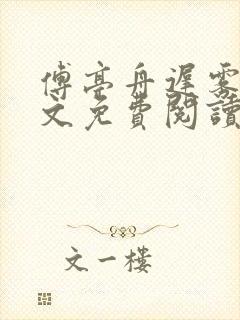 傅亭舟遲雾
文免費閱讀
文一樓